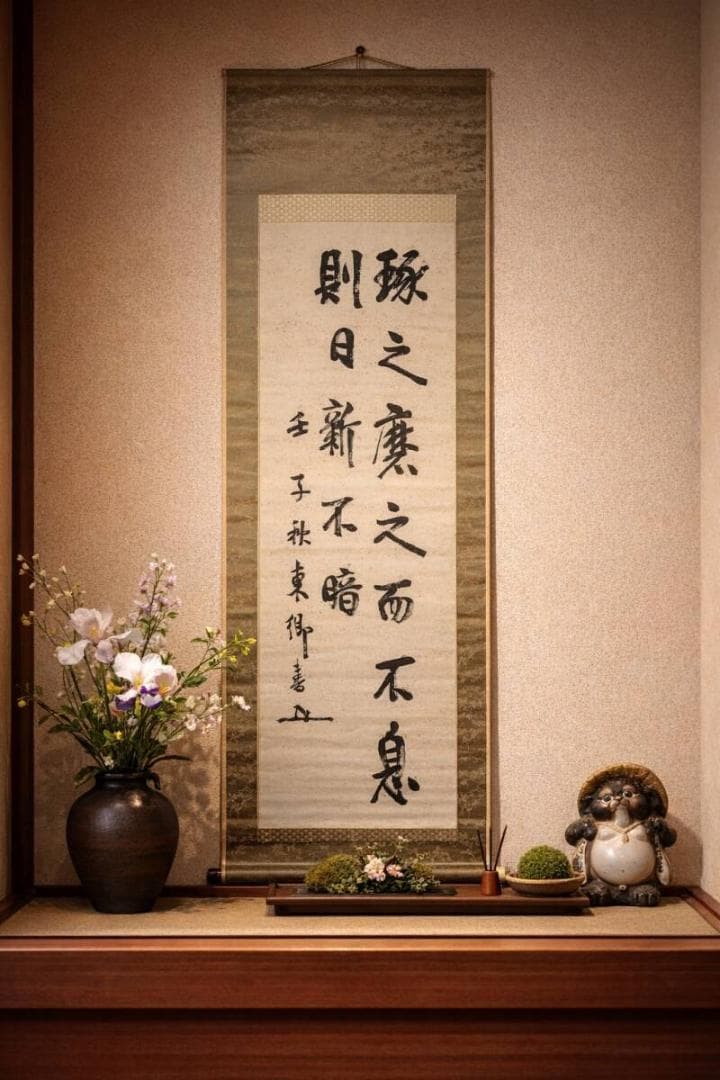 琢之磨之而不息
則日新不暗
壬子秋東郷書